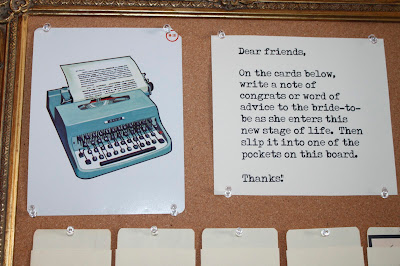 Dear friends,
On the cards below,
write a note of
congrats or word of
advice to the bride-to-
be as she enters this
new stage of life. Then
slip it into one of the
pockets on this board.
Thanks!